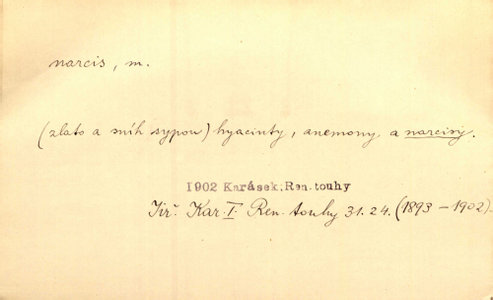 narcis, m.
(zlato a sníh sypou) hyacinty, anemony a narcisy.
1902 Karásek, Ren. touhy
Jiř. Kar. I. Ren. touhy 31. 24. (1893 – 1902).